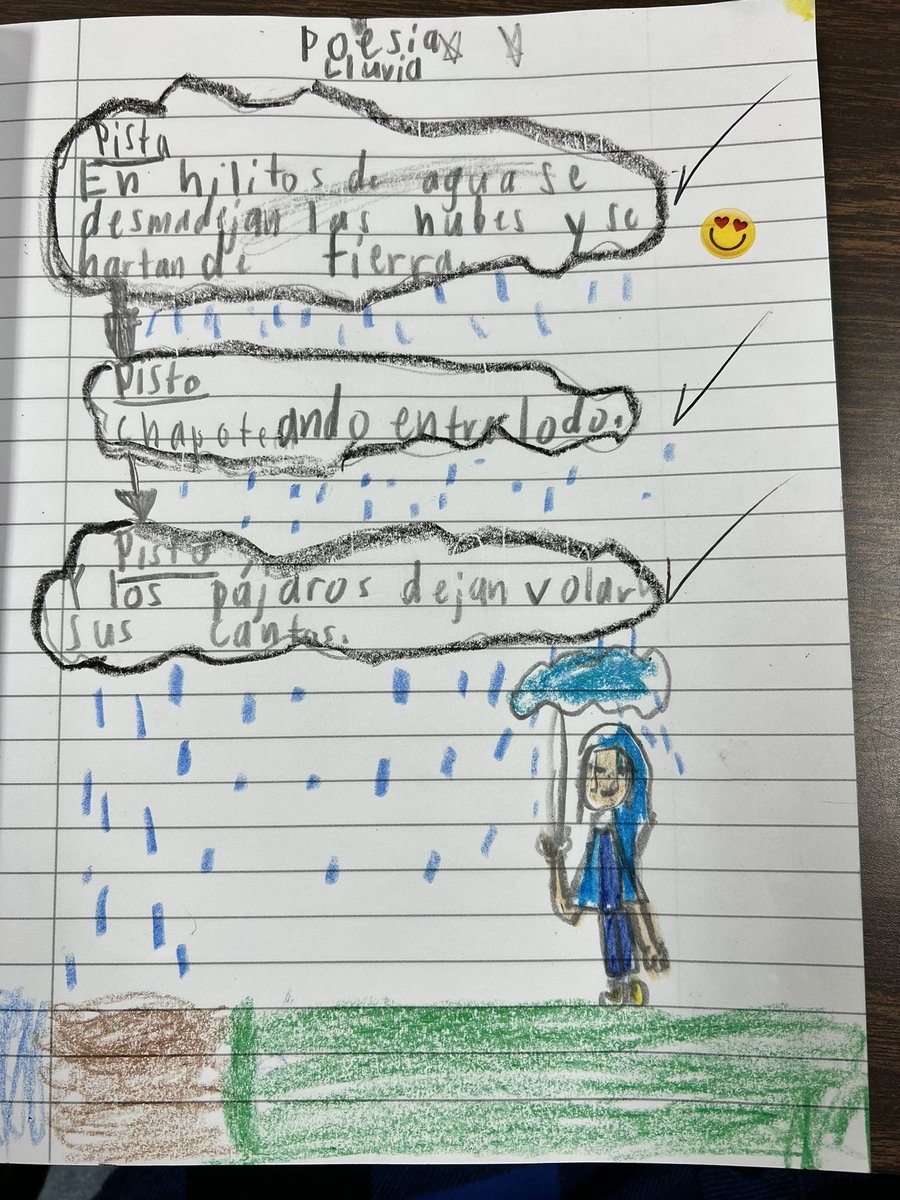 Poesia
Lluvia
Pista
En hilitos de agua se
desmadejan las nubes y se
hartan de tierra.
Pisto
chapoteando entre lodo.
Pisto
Y los pájaros dejan volar
sus cantos.